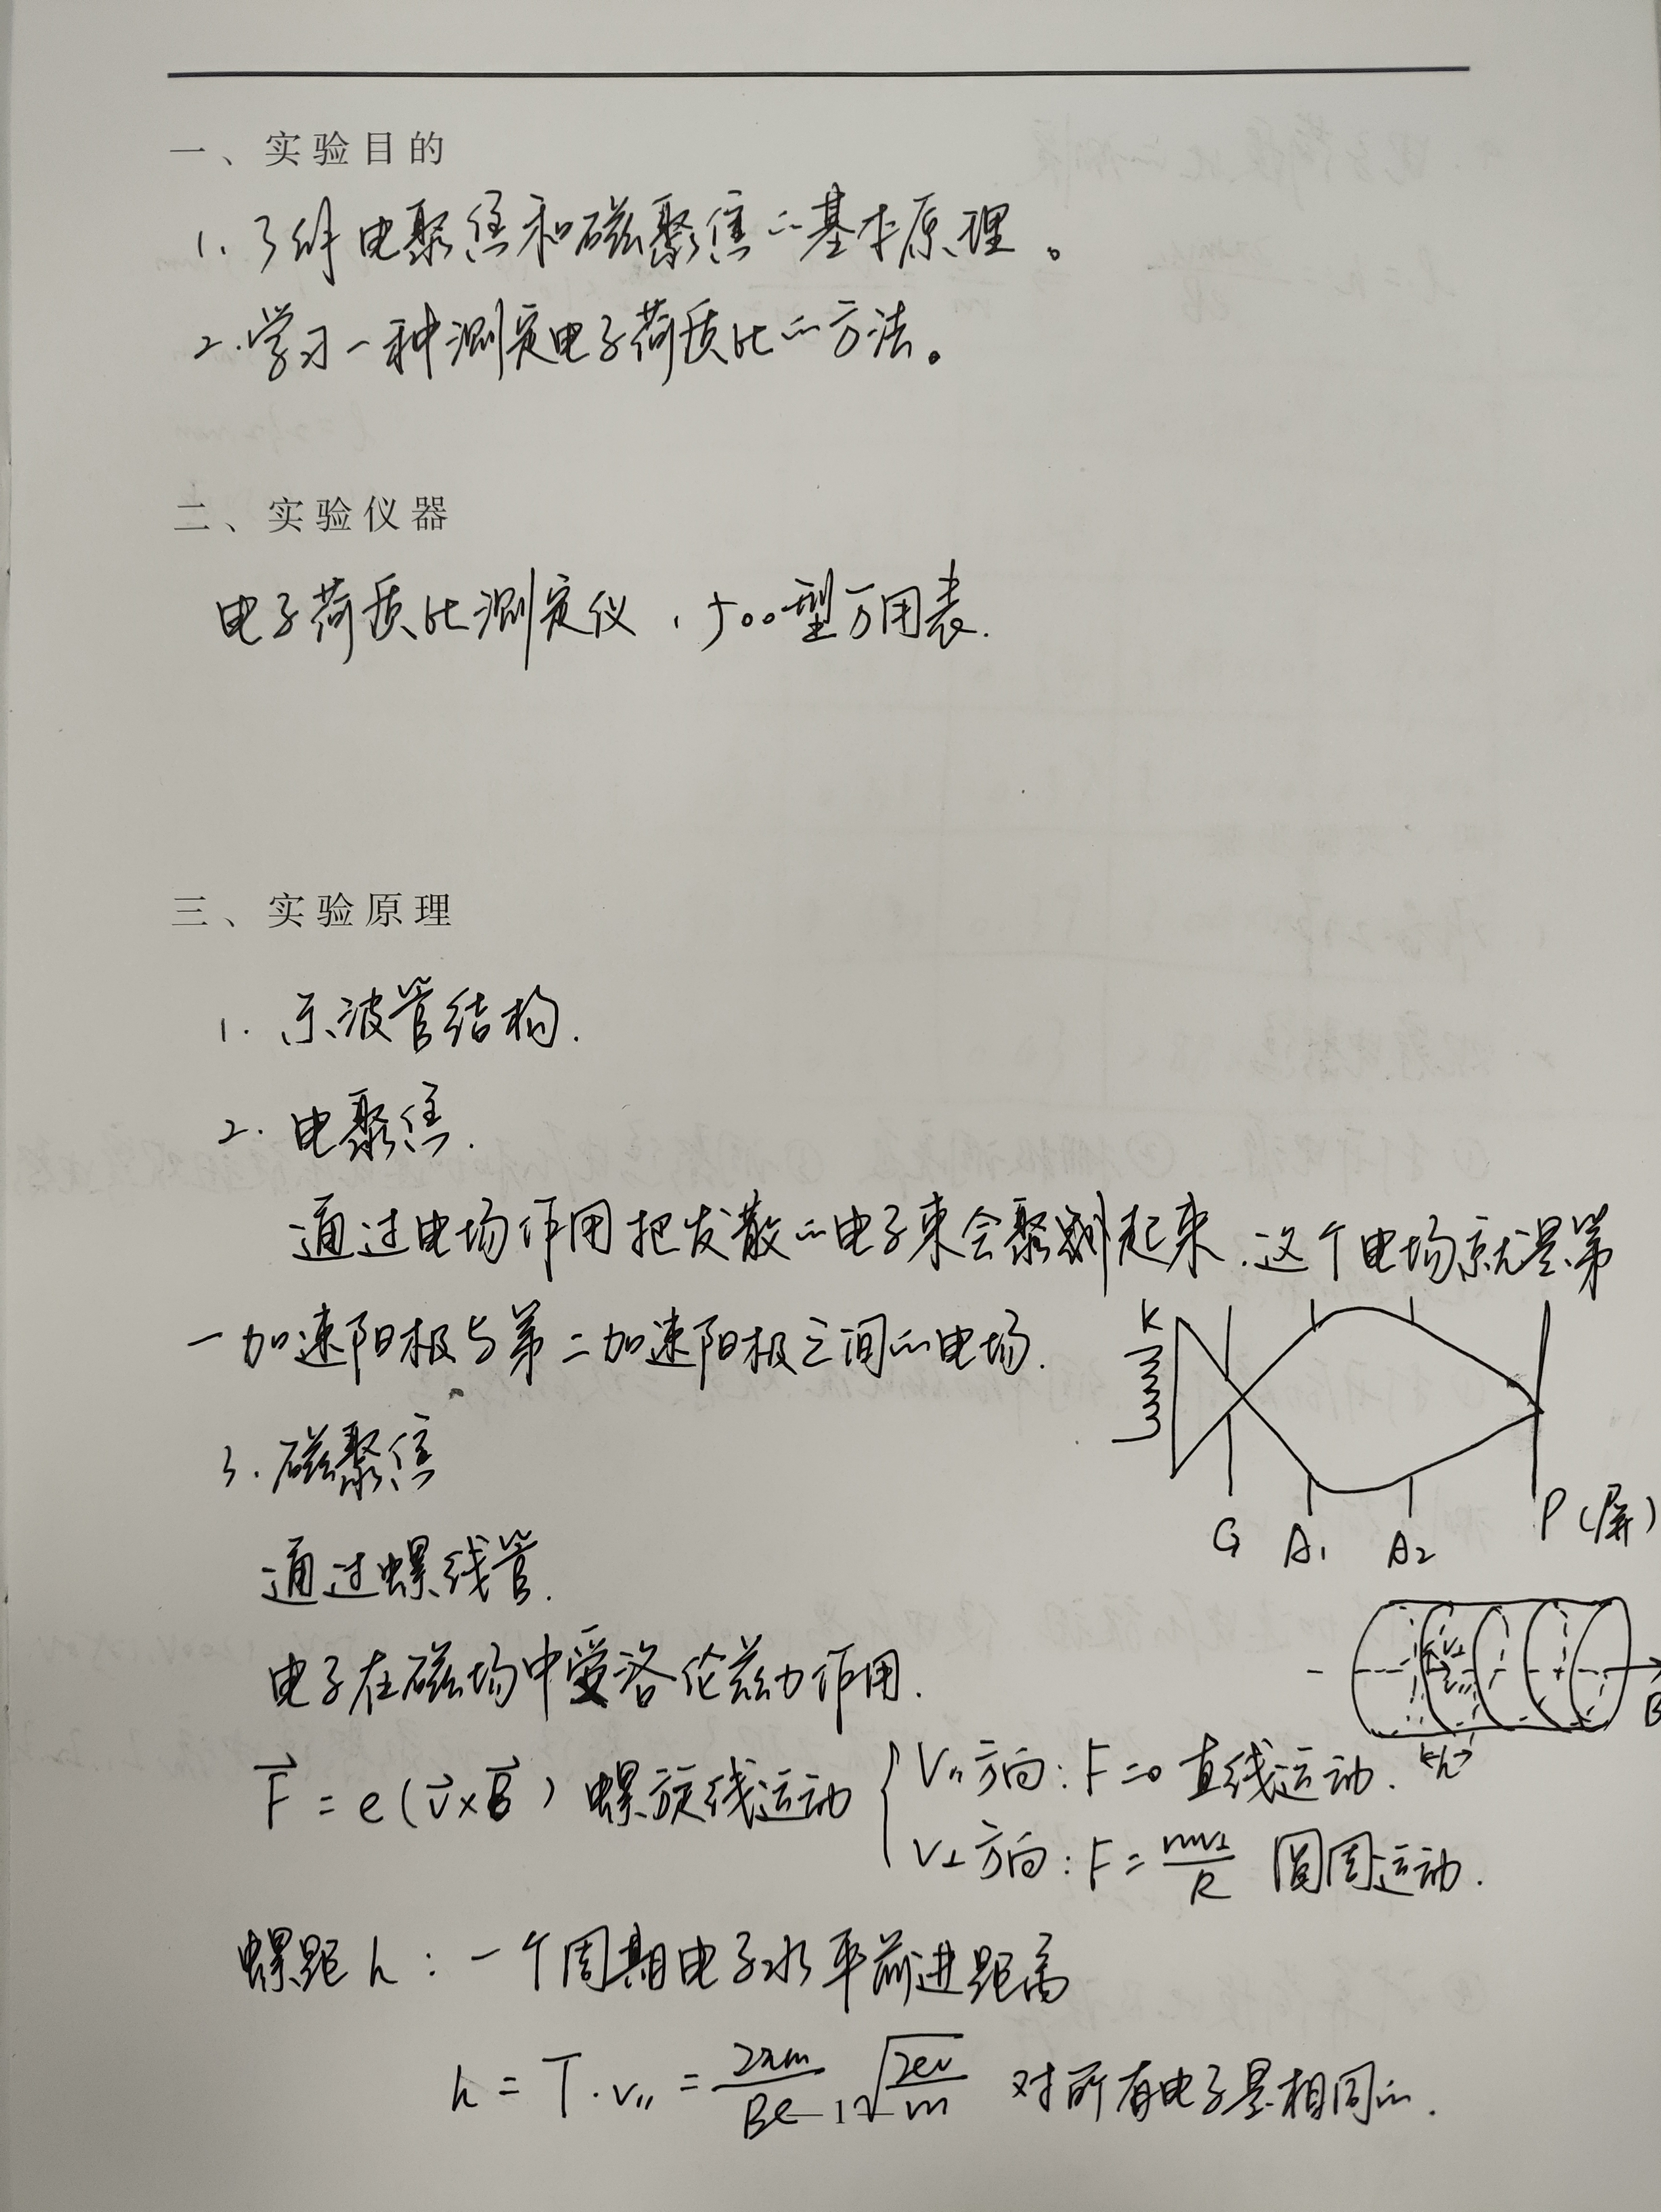 一、实验目的
1. 了解电聚焦和磁聚焦的基本原理。
2. 学习一种测定电子荷质比的方法。
二、实验仪器
电子荷质比测定仪，500型万用表.
三、实验原理
1. 示波管结构.
2. 电聚焦.
通过电场作用把发散的电子束会聚起来.这个电场就是第
一加速阳极与第二加速阳极之间的电场.
K
G A₁ A₂ P(屏)
3. 磁聚焦
通过螺线管.
电子在磁场中受洛伦兹力作用.
B
h
F⃗ = e(v⃗×B⃗) 螺旋线运动 { V∥方向: F=0 直线运动.
V⊥方向: F = mv⊥/R 圆周运动.
螺距h：一个周期电子水平前进距离
h = T·v∥ = 2πm/Be √(2ev/m) 对所有电子是相同的.
1